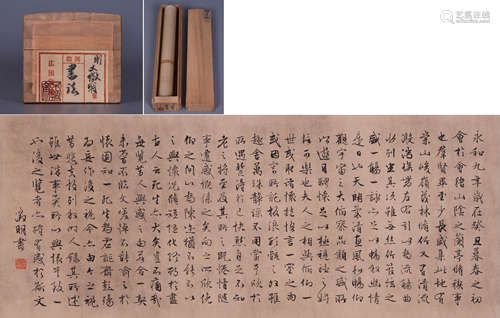 明文徵明
書法
艺狐在线
永和九年歲在癸丑暮春之初
會于會稽山陰之蘭亭脩禊事
也羣賢畢至少長咸集此地有
崇山峻嶺茂林脩竹又有清流
激湍映帶左右引以為流觴曲
水列坐其次雖無絲竹管弦之
盛一觴一詠亦足以暢敘幽情
是日也天朗氣清惠風和暢仰
觀宇宙之大俯察品類之盛所
以遊目騁懷足以極視聽之娛
信可樂也夫人之相與俯仰一
世或取諸懷抱悟言一室之內
或因寄所託放浪形骸之外雖
趣舍萬殊靜躁不同當其欣於
所遇暫得於己快然自足不知
老之將至及其所之既倦情隨
事遷感慨係之矣向之所欣俛
仰之間以為陳迹猶不能不以
之興懷況脩短隨化終期於盡
古人云死生亦大矣豈不痛哉
每覽昔人興感之由若合一契
未嘗不臨文嗟悼不能喻之於
懷固知一死生為虛誕齊彭殤
為妄作後之視今亦由今之視
昔悲夫故列敘時人錄其所述
雖世殊事異所以興懷其致一
也後之覽者亦將有感於斯文
徵明書